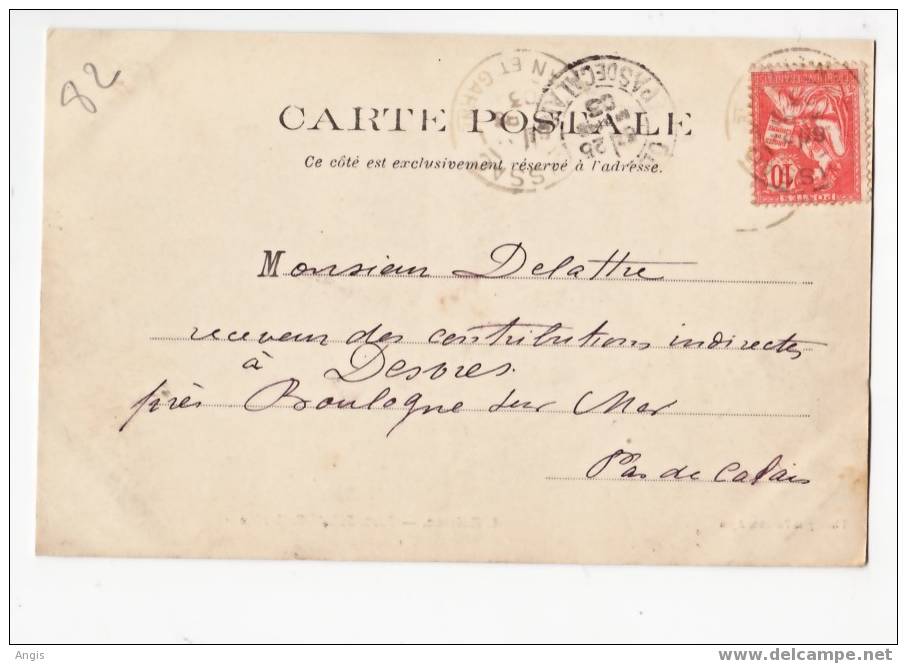 82
CARTE POSTALE
Ce côté est exclusivement réservé à l'adresse.
Monsieur Delattre
receveur des contributions indirectes
à Desvres
près Boulogne sur Mer
Pas de Calais
10
POSTES
PAS DE CALAIS
N ET GAR
25
03
Angis
www.delcampe.net